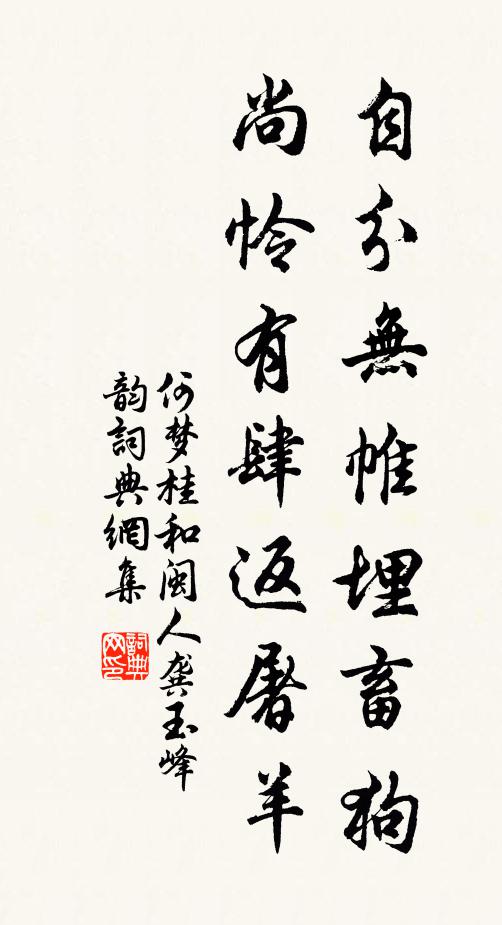 自分無帷埋畜狗
尚怜有肆返屠羊
何梦桂和闽人龚玉峰
韵詞典網集
詞典网印